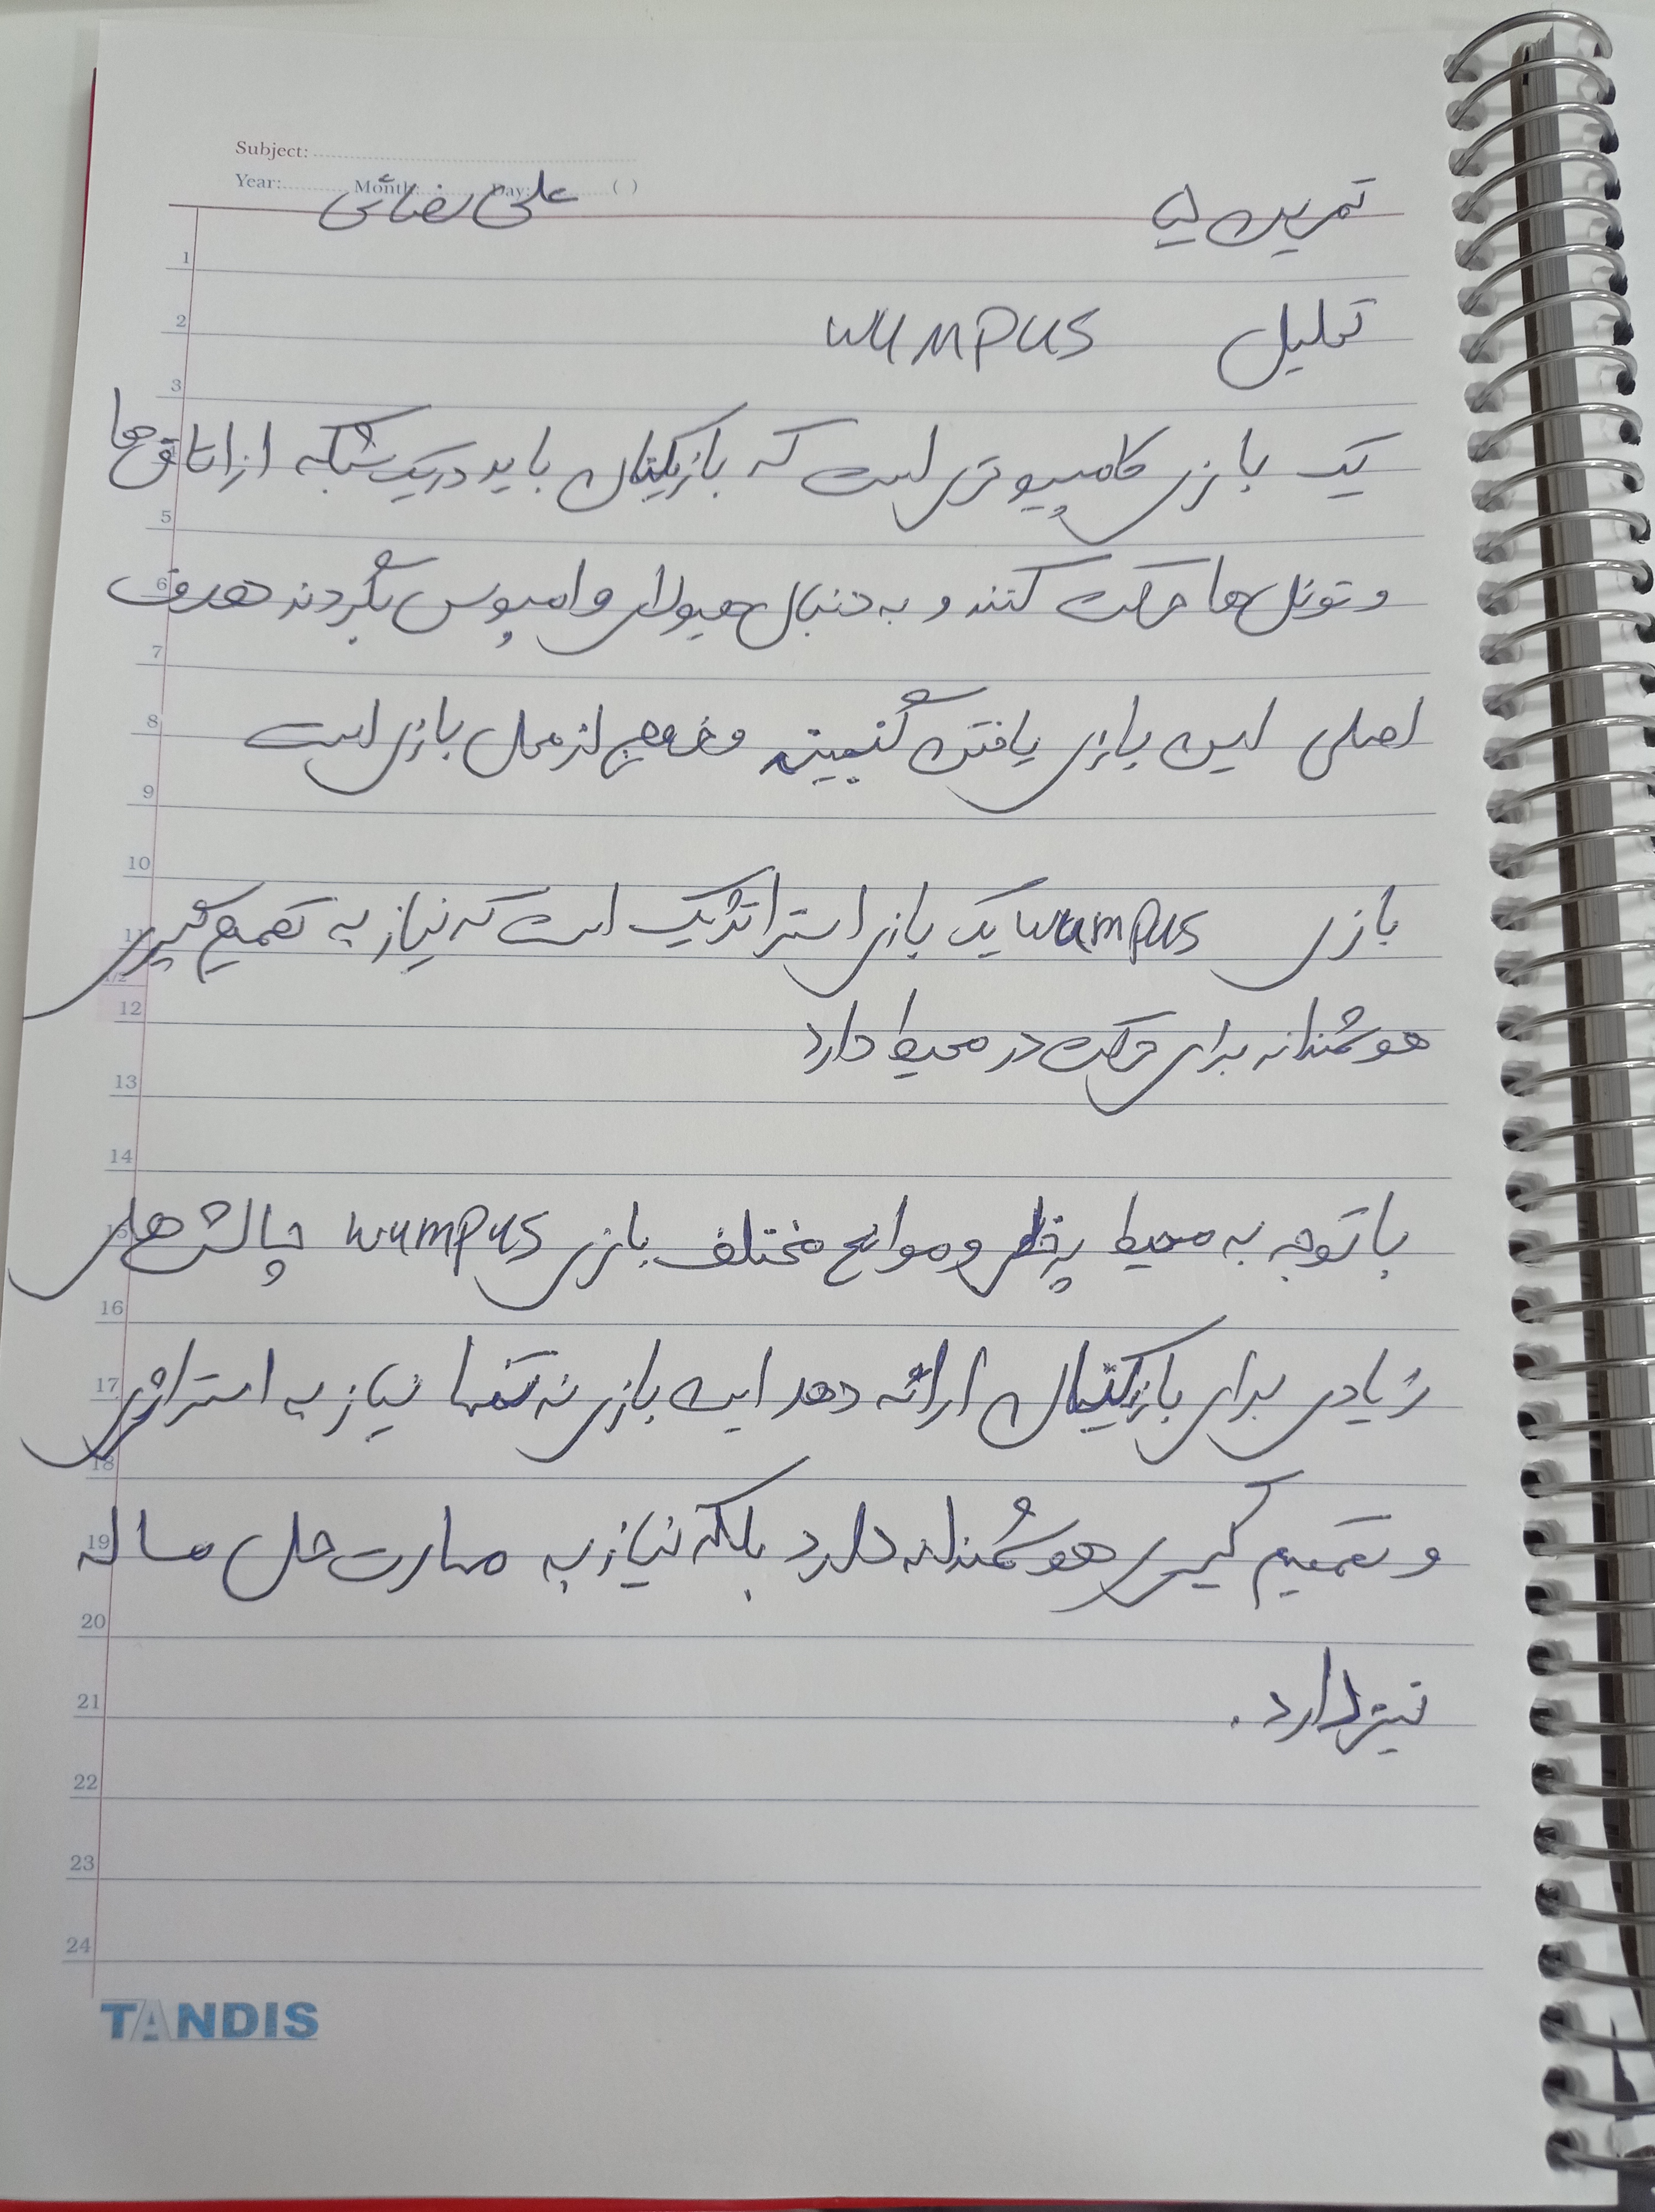 Subject:
Year: Month: Day: ( )
تمرین ۵ علی رضائی
تحلیل WUMPUS
یک بازی کامپیوتری است که بازیکنان باید در یک شبکه از اتاق ها
و تونل ها حرکت کنند و به دنبال هیولای وامپوس بگردند هدف
اصلی این بازی یافتن گنجینه و خروج از محل بازی است
بازی wumpus یک بازی استراتژیک است که نیاز به تصمیم گیری
هوشمندانه برای حرکت در محیط دارد
با توجه به محیط پرخطر و موانع مختلف بازی wumpus چالش های
زیادی برای بازیکنان ارائه دهد این بازی نه تنها نیاز به استراتژی
و تصمیم گیری هوشمندانه دارد بلکه نیاز به مهارت حل مساله
نیز دارد .
1
2
3
5
6
7
8
9
10
11
12
13
14
15
16
17
18
19
20
21
22
23
24
TANDIS